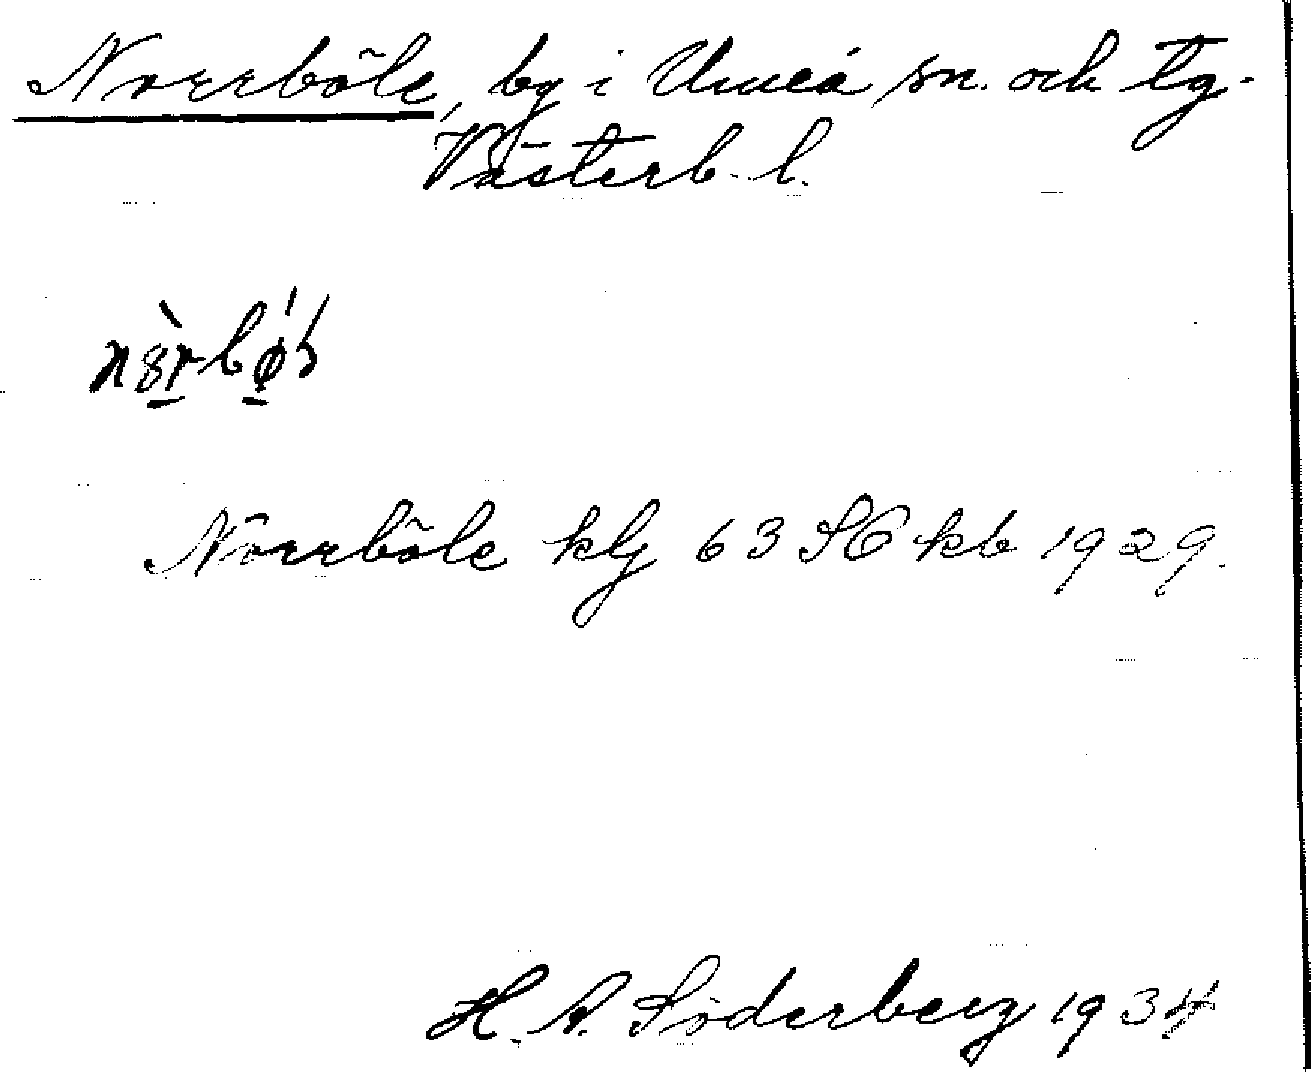 Norrböle, by i Umeå sn. och tg.
Västerb. l.
Norrböle klg 63 SO kb 1929.
H. A. Söderberg 1934